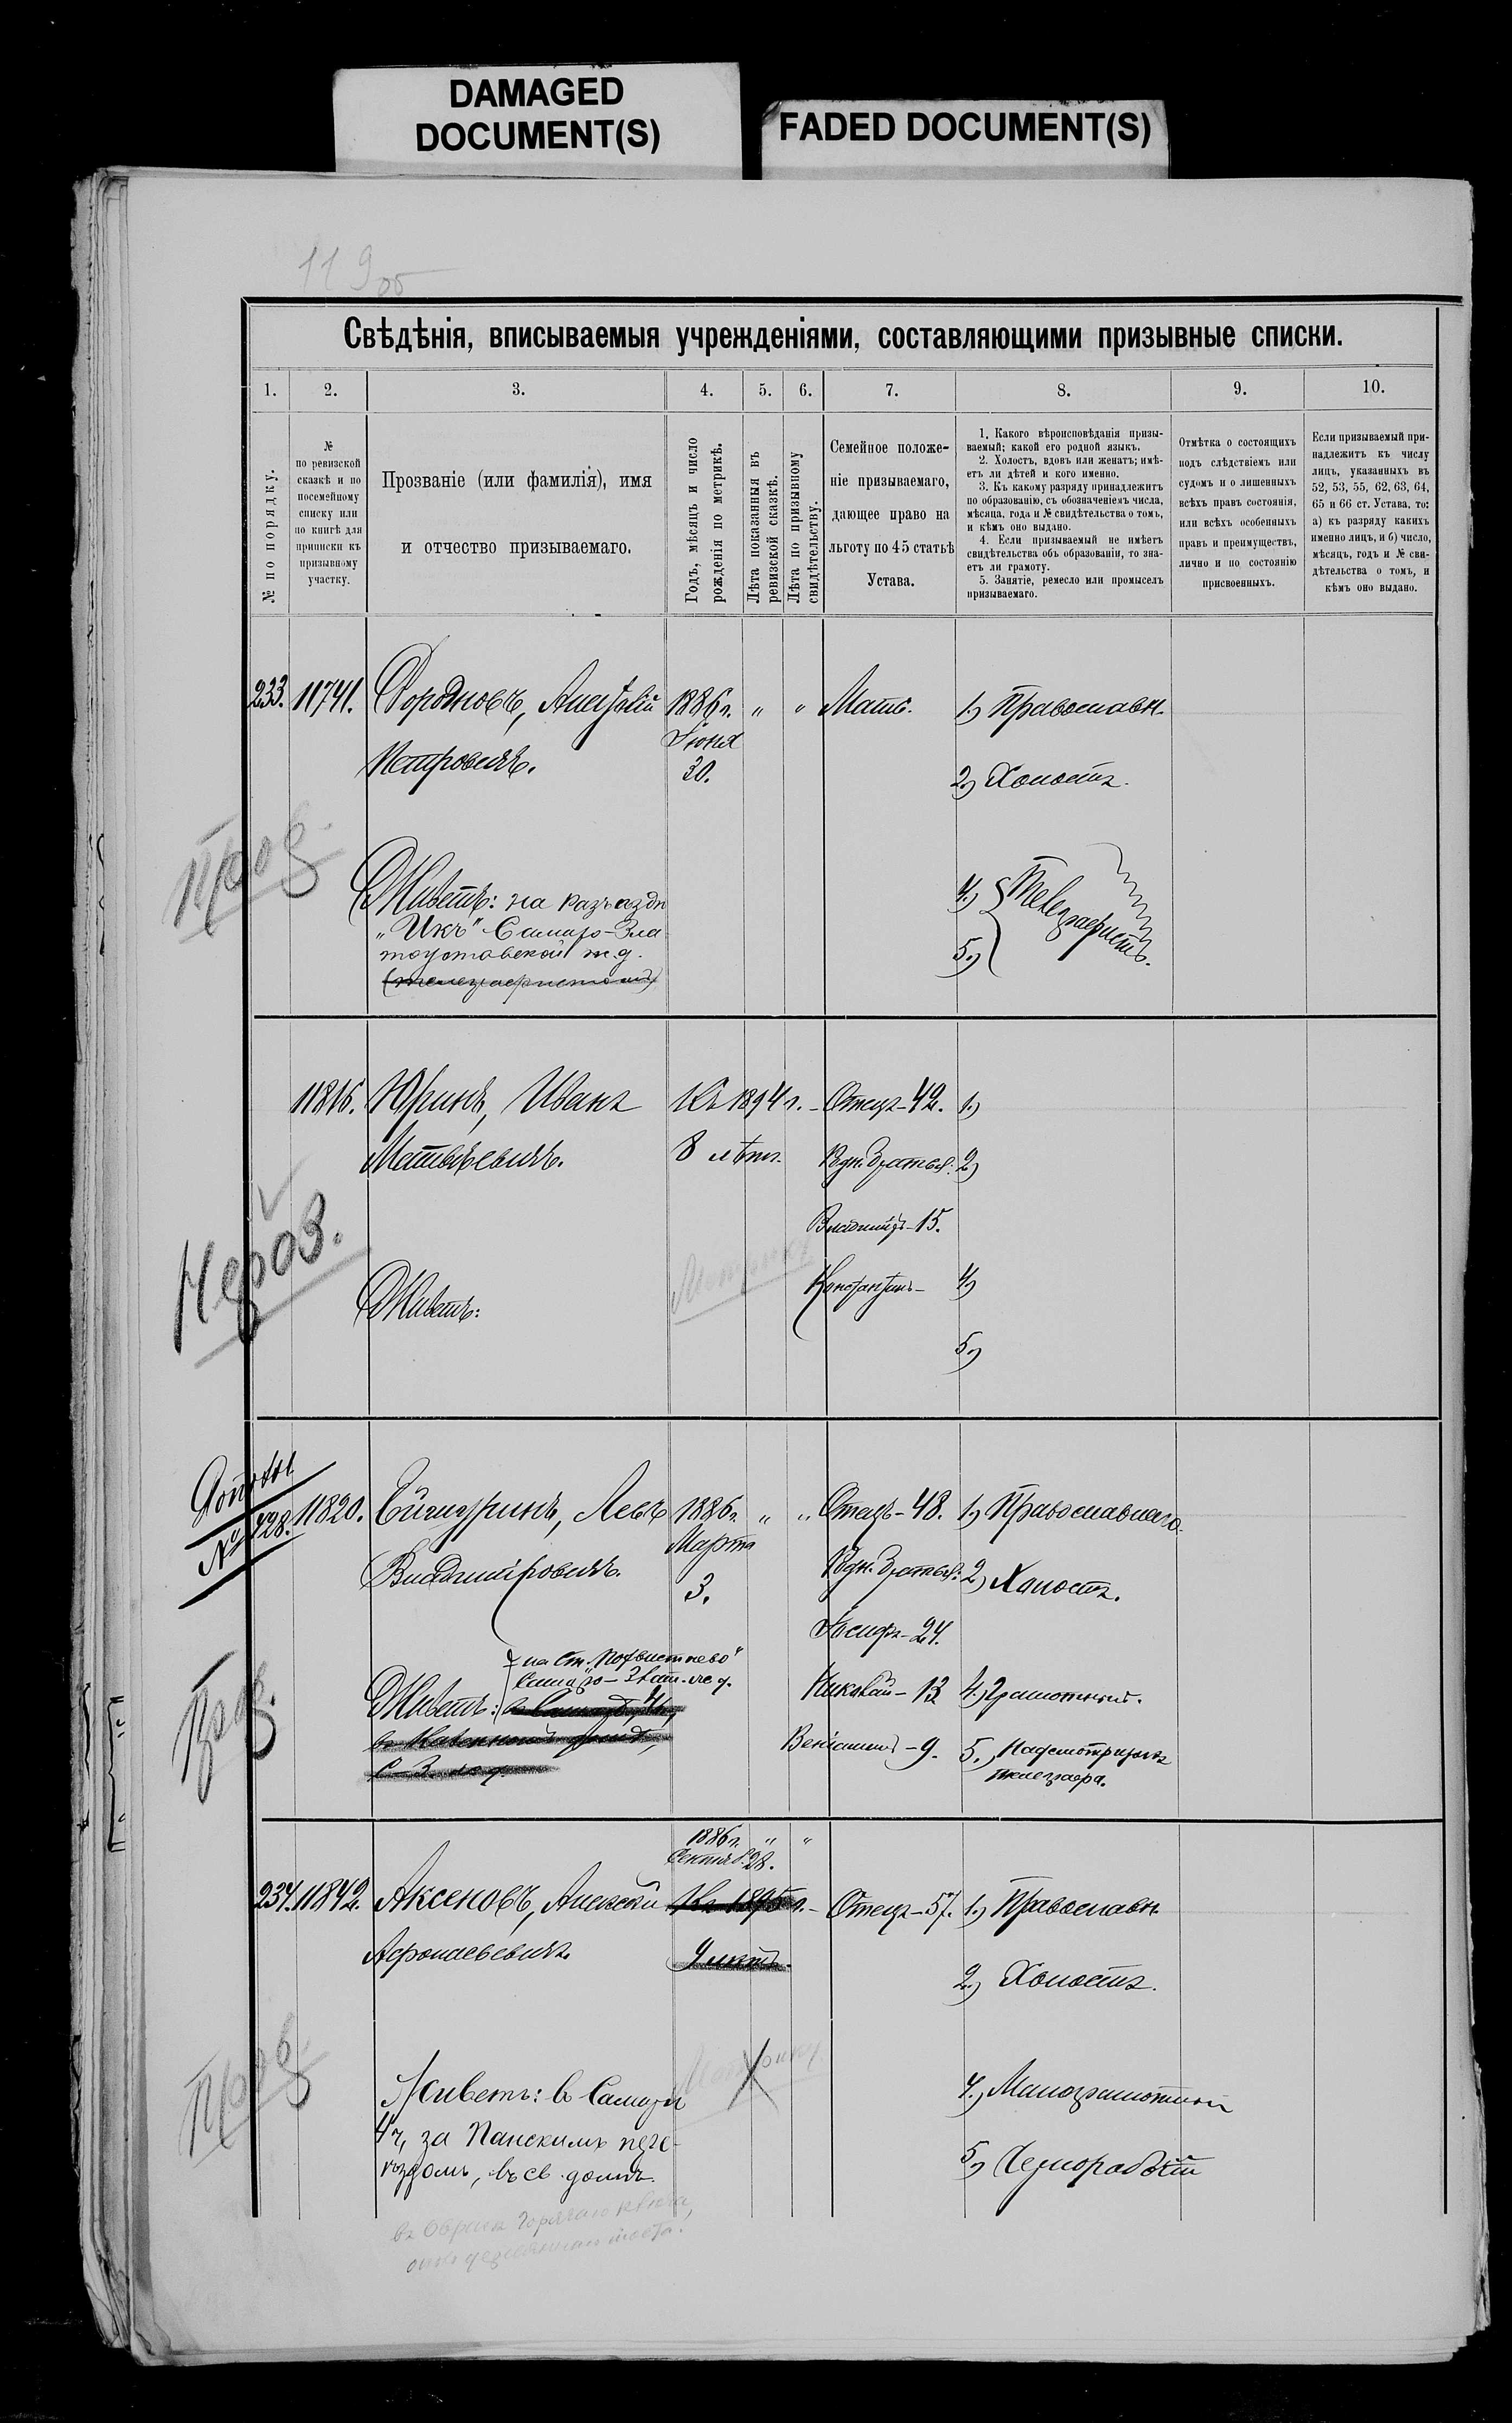 DAMAGED
DOCUMENT(S)
FADED DOCUMENT(S)
119 об
Свѣдѣнія, вписываемыя учрежденіями, составляющими призывные списки.
1. 2. 3. 4. 5. 6. 7. 8. 9. 10.
№ по порядку.
№
по ревизской
сказкѣ и по
посемейному
списку или
по книгѣ для
приписки къ
призывному
участку.
Прозваніе (или фамилія), имя
и отчество призываемаго.
Годъ, мѣсяцъ и число
рожденія по метрикѣ.
Лѣта показанныя въ
ревизской сказкѣ.
Лѣта по призывному
свидѣтельству.
Семейное положе-
ніе призываемаго,
дающее право на
льготу по 45 статьѣ
Устава.
1. Какого вѣроисповѣданія призы-
ваемый; какой его родной языкъ.
2. Холостъ, вдовъ или женатъ; имѣ-
етъ ли дѣтей и кого именно.
3. Къ какому разряду принадлежитъ
по образованію, съ обозначеніемъ числа,
мѣсяца, года и № свидѣтельства о томъ,
и кѣмъ оно выдано.
4. Если призываемый не имѣетъ
свидѣтельства объ образованіи, то зна-
етъ ли грамоту.
5. Занятіе, ремесло или промыселъ
призываемаго.
Отмѣтка о состоящихъ
подъ слѣдствіемъ или
судомъ и о лишенныхъ
всѣхъ правъ состоянія,
или всѣхъ особенныхъ
правъ и преимуществъ,
лично и по состоянію
присвоенныхъ.
Если призываемый при-
надлежитъ къ числу
лицъ, указанныхъ въ
52, 53, 55, 62, 63, 64,
65 и 66 ст. Устава, то:
а) къ разряду какихъ
именно лицъ, и б) число,
мѣсяцъ, годъ и № сви-
дѣтельства о томъ, и
кѣмъ оно выдано.
233. 11741. Дородновъ, Анатолій 1886 г. " " Мать. 1.) Православн.
Петровичъ. Іюня
30. 2.) Холостъ.
Пров.
Живетъ: на разъѣздѣ
„Икъ" Самаро-Зла
тоустовской ж.д.
(телеграфистомъ)
4.) 5.) Телеграфистъ.
11816. Юринъ, Иванъ Къ 1894 г. - Отецъ-42. 1.)
Матвѣевичъ. 8 лѣтъ. Родн. братья: 2)
Владиміръ-15.
Нероз.
Метрику
Константинъ- 4)
Живетъ:
5)
№ 428. 11820. Левъ 1886 г. " " Отецъ-48. 1.) Православнаго.
Владиміровичъ. Марта
3. Родн. братья: 2) Холостъ.
Іосифъ-24.
на Ст. „Похвистнево"
Самаро-Злат. ж. д.
Пров.
Живетъ: Николай-13 4.) Грамотный.
Веніаминъ-9. 5.) Надсмотрщикъ
телеграфа.
1886 г. " "
Сентяб. 28.
234. 11842. Аксеновъ, Алексѣй Къ 1895 г. - Отецъ-57. 1.) Православн.
9 лѣтъ.
2.) Холостъ.
Пров.
Метрику
Живетъ: въ Самарѣ
4 ч, за Панскимъ пере-
ѣздомъ, въ св. домѣ.
4.) Малограмотный
5) Чернорабочій
въ Овраге Горячаго ключа,
около деревяннаго моста.